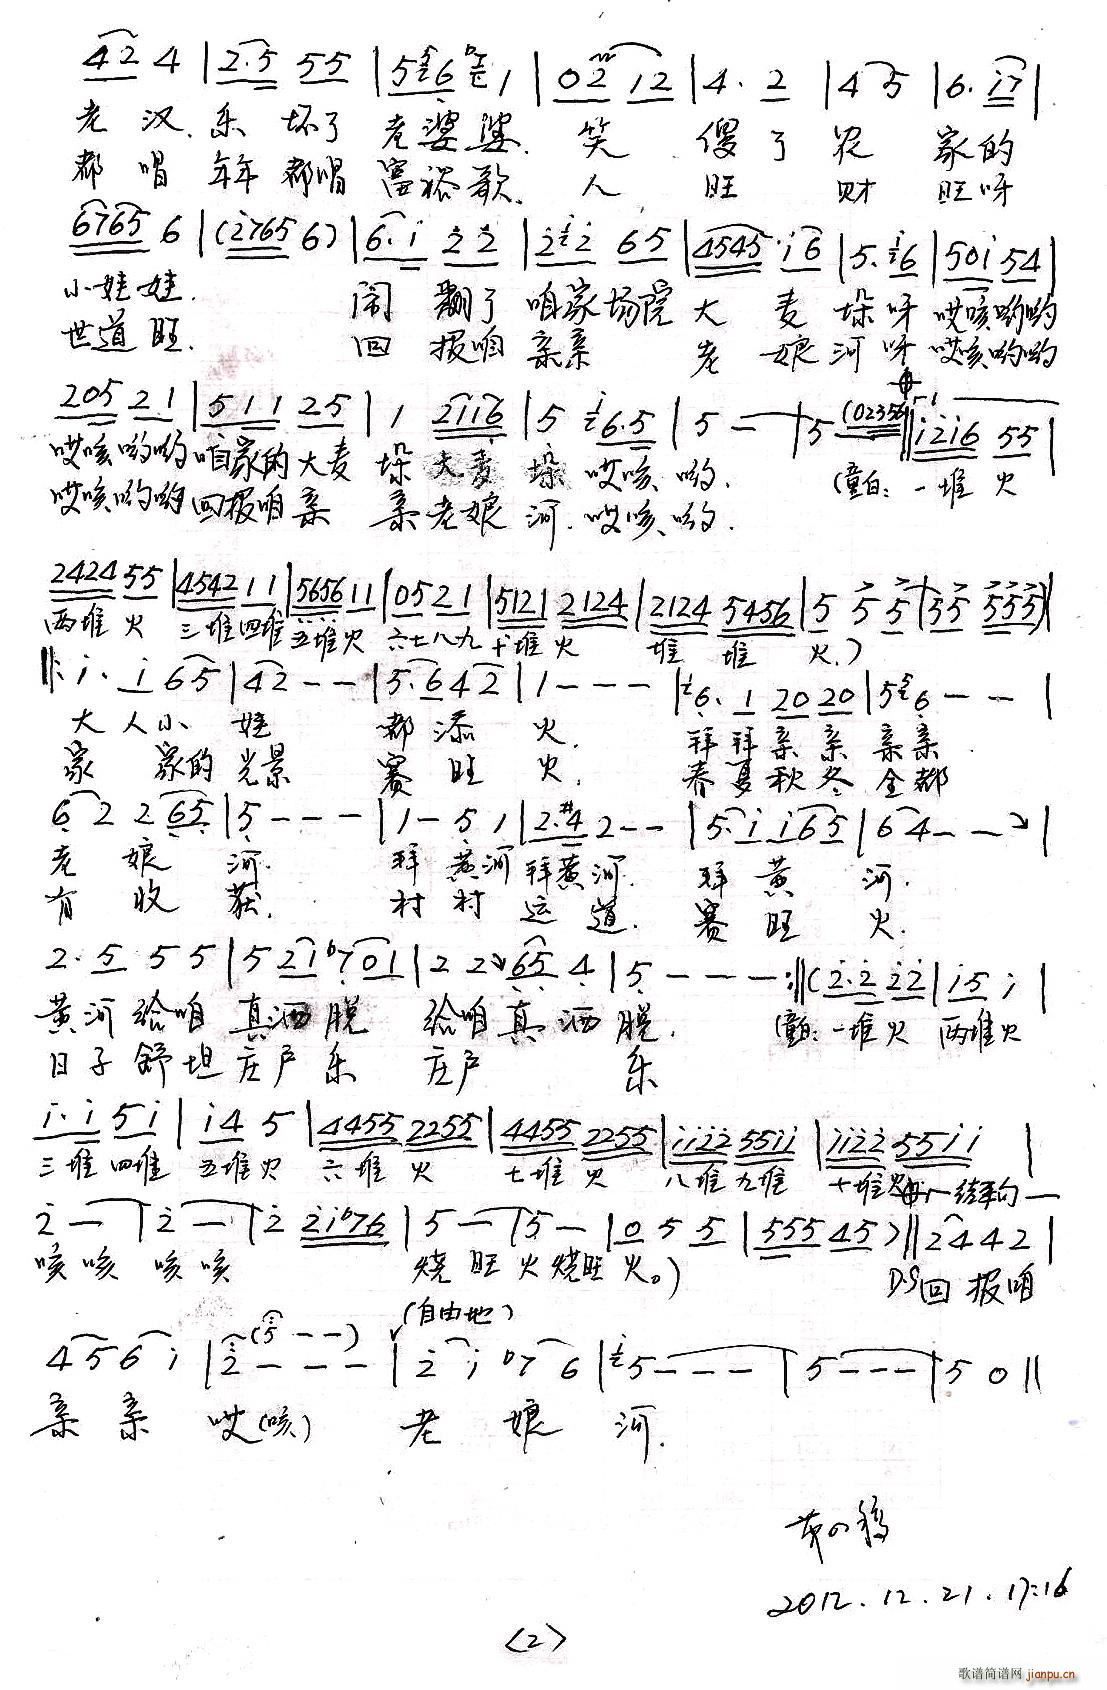 42 4 | 2·5 55 | 5 6 1 | 02 12 | 4· 2 | 4 5 | 6· i7 |
老汉乐坏了老婆婆.笑傻了农家的
都唱年年都唱富裕歌.人旺财旺呀
6765 6 | (2765 6) | 6·i 22 | 2 2 65 | 4545 i6 | 5· 6 | 50i 54 |
小娃娃.闹翻了咱家场院大麦垛呀哎咳哟哟
世道旺.回报咱亲亲老娘河呀哎咳哟哟
205 21 | 511 25 | 1 2116 | 5 6·5 | 5 — | 5 (02356 || i2i6 55 |
哎咳哟哟咱家的大麦垛大麦垛哎咳哟.(童白:一堆火
哎咳哟哟回报咱亲亲老娘河.哎咳哟.
2424 55 | 4542 11 | 5656 11 | 0521 | 5121 2124 | 2124 5456 | 5 5 5 | 55 555) |
两堆火三堆四堆五堆火六七八九十堆火堆堆火.)
||: i· i 65 | 42 - - | 5·6 42 | 1 - - - | 6· 1 20 20 | 5 6 - - |
大人小娃都添火.拜拜亲亲亲亲
家家的光景赛旺火.春夏秋冬全都
6 2 2 65 | 5 - - - | 1 - 5 1 | 2·#4 2 - - | 5· i i65 | 6 4 - - |
老娘河.拜黄河拜黄河.拜黄河.
有收获.村村运道.赛旺火.
2· 5 5 5 | 5 2i b701 | 2 2 65 4 | 5 - - - :|| (2·2 22 | i5 i |
黄河给咱真洒脱给咱真洒脱.(童白:一堆火两堆火
日子舒坦庄户乐庄户乐
i· i 5i | i4 5 | 4455 2255 | 4455 2255 | ii22 55ii | ii22 55ii |
三堆四堆五堆火六堆火七堆火八堆九堆十堆火 结束句
2 — | 2 — | 2 2ib76 | 5 — | 5 — | 0 5 5 | 555 45) || 2442 |
咳咳咳咳烧旺火烧旺火。) D.S 回报咱
(5 - -) (自由地)
456 i | 2 - - - | 2 i b7 6 | 5 - - - | 5 - - - | 5 0 ||
亲亲哎(咳)老娘河.
2012.12.21.17:16
<2>
歌谱简谱网 jianpu.cn